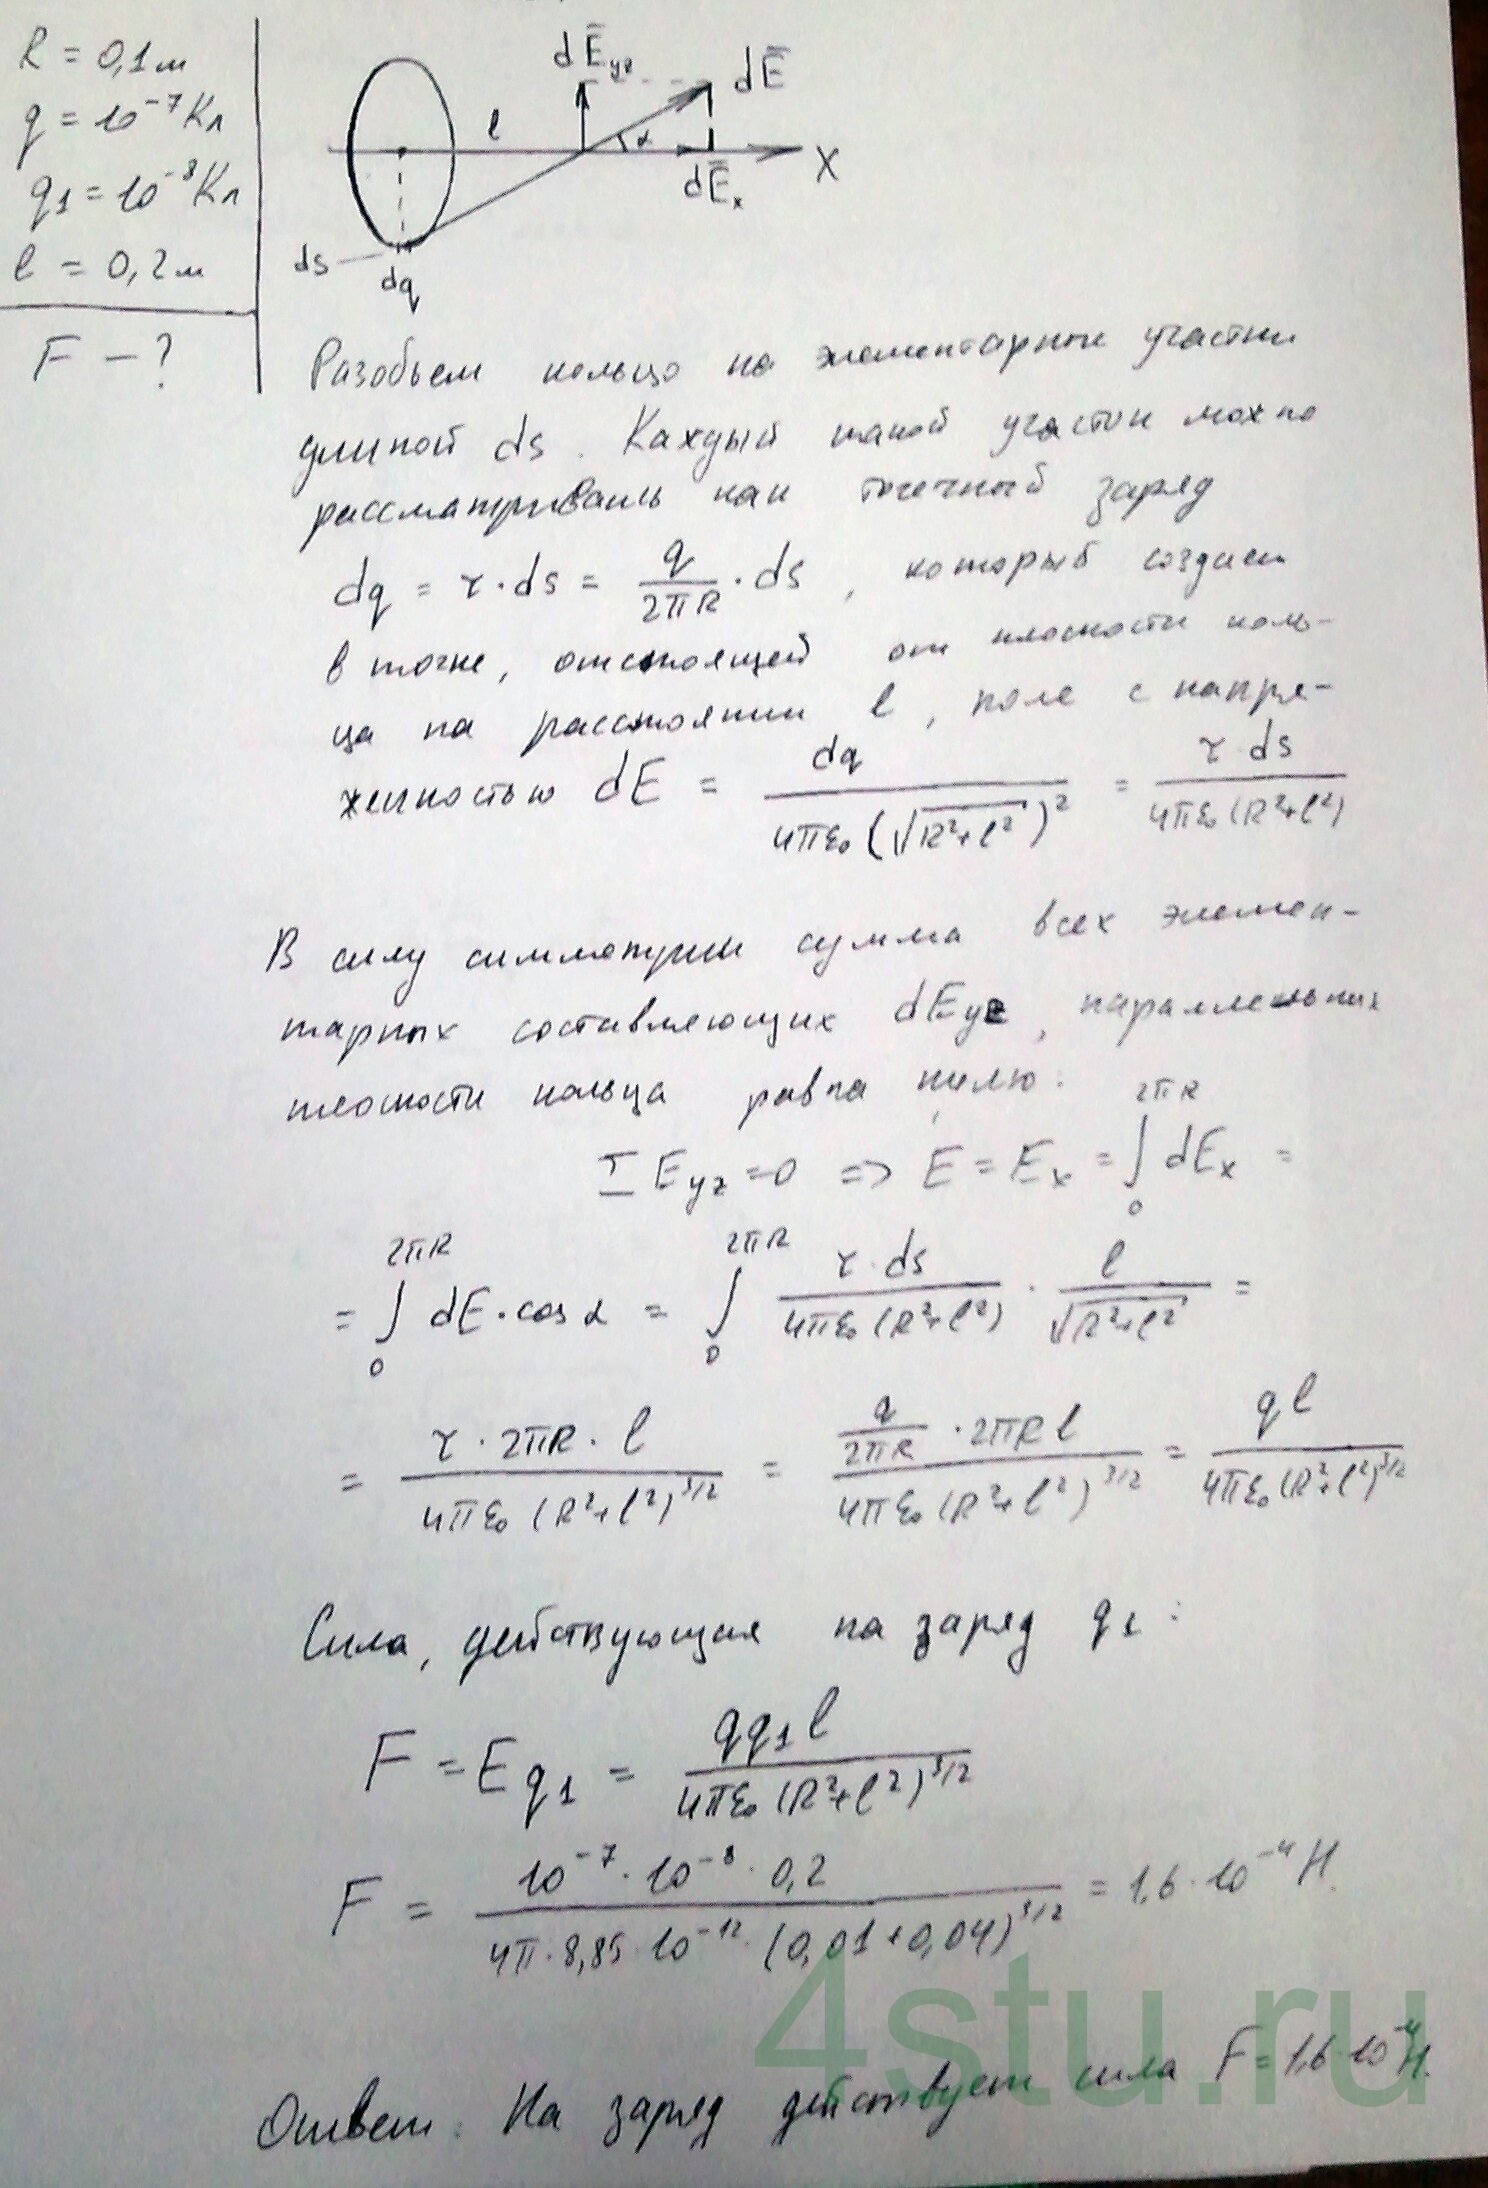 R = 0,1 м
q = 10⁻⁷ Кл
q₁ = 10⁻⁸ Кл
l = 0,2 м
F – ?
dĒyz
dĒ
l
α
dĒx
X
ds
dq
Разобьем кольцо на элементарные участки
длиной ds. Каждый такой участок можно
рассматривать как точечный заряд
dq = τ·ds = q/(2πR) · ds, который создает
в точке, отстоящей от плоскости коль-
ца на расстоянии l, поле с напря-
женностью dE = dq/(4πε₀(√(R²+l²))²) = τ·ds/(4πε₀(R²+l²))
В силу симметрии сумма всех элемен-
тарных составляющих dEyz, параллельных
плоскости кольца равна нулю:
Σ Eyz = 0 => E = Ex = ∫₀^(2πR) dEx =
= ∫₀^(2πR) dE·cos α = ∫₀^(2πR) τ·ds/(4πε₀(R²+l²)) · l/√(R²+l²) =
= τ·2πR·l/(4πε₀(R²+l²)^(3/2)) = (q/(2πR) · 2πRl)/(4πε₀(R²+l²)^(3/2)) = ql/(4πε₀(R²+l²)^(3/2))
Сила, действующая на заряд q₁:
F = Eq₁ = qq₁l/(4πε₀(R²+l²)^(3/2))
F = 10⁻⁷·10⁻⁸·0,2/(4π·8,85·10⁻¹²·(0,01+0,04)^(3/2)) = 1,6·10⁻⁴ Н.
Ответ: На заряд действует сила F = 1,6·10⁻⁴ Н.
4stu.ru